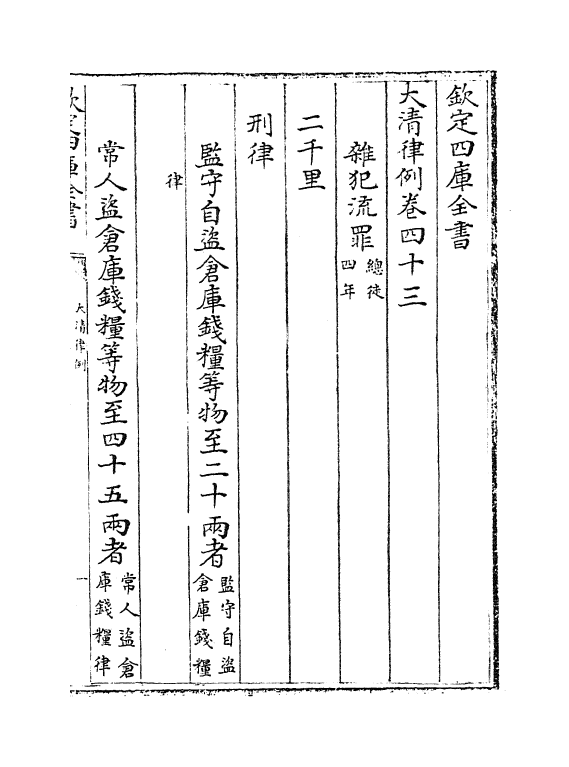 欽定四庫全書
大清律例卷四十三
雜犯流罪總徒四年
二千里
刑律
監守自盜倉庫錢糧等物至二十兩者監守自盜倉庫錢糧
律
常人盜倉庫錢糧等物至四十五兩者常人盜倉庫錢糧律
欽定四庫全書
大清律例
一